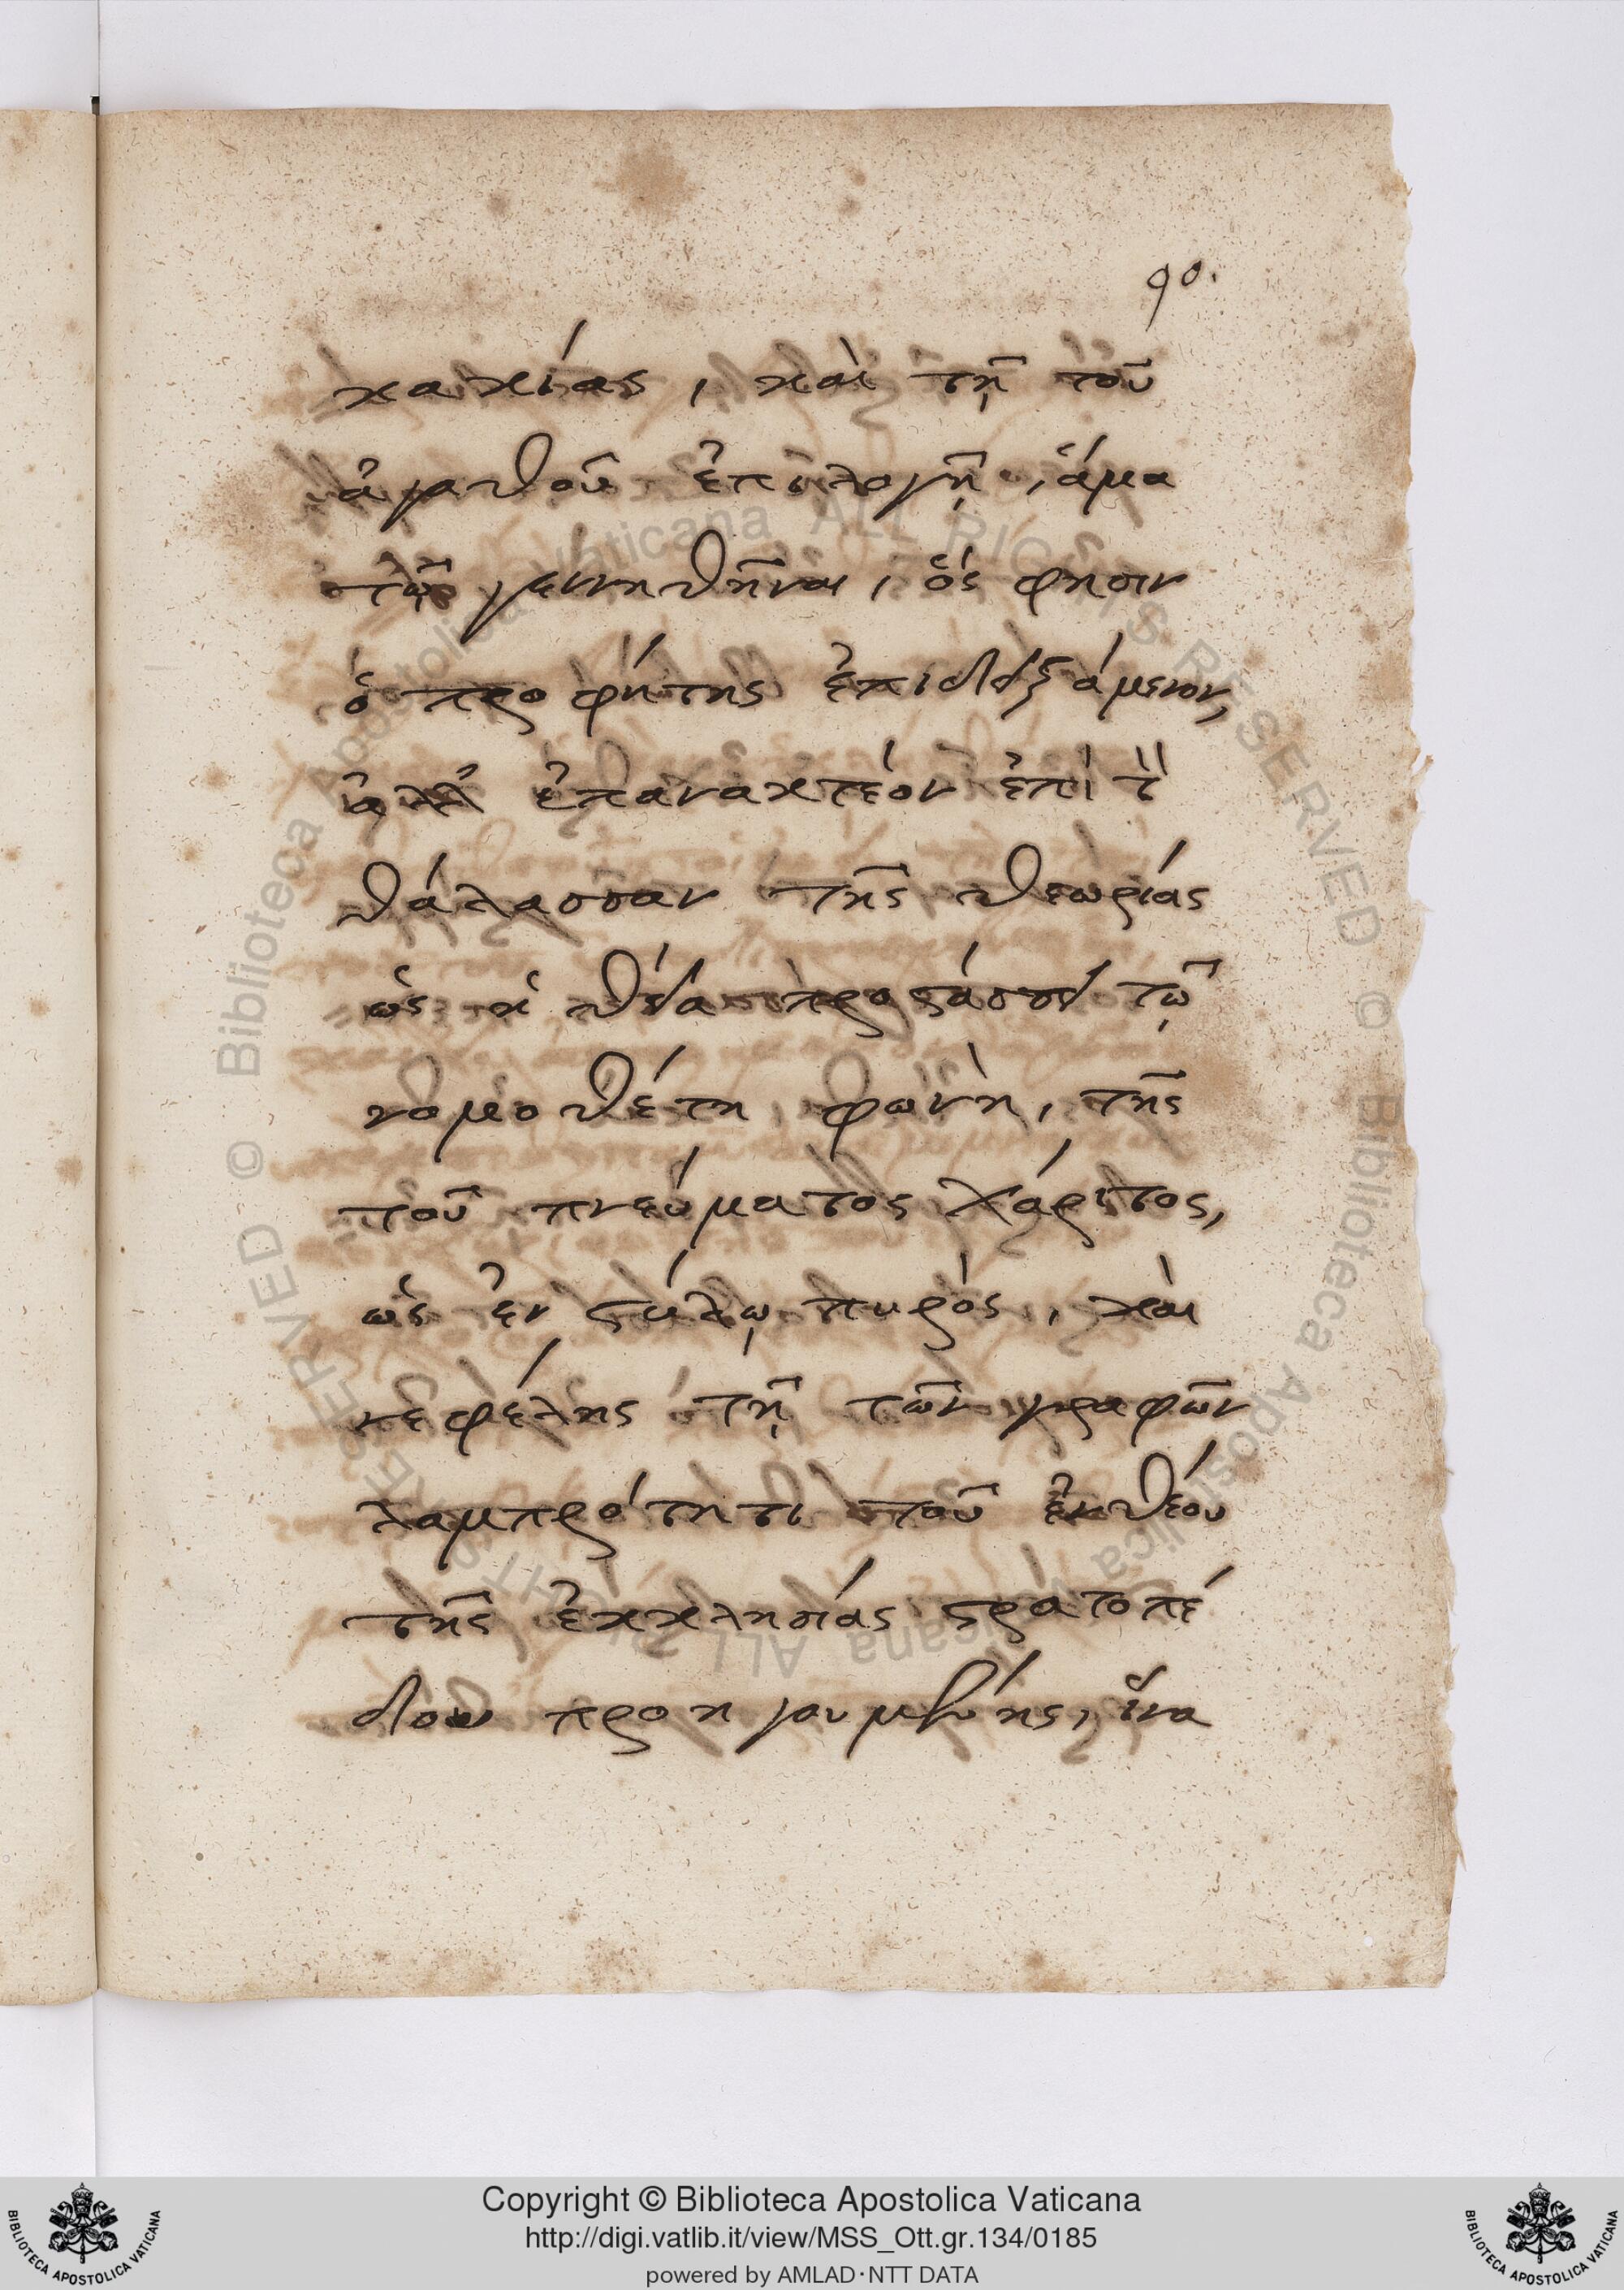 90.
κακίας, καὶ τῇ τοῦ
ἀγαθοῦ ἐπιλογῇ, ἅμα
τῷ γεννηθῆναι, ὅς φησιν
ὁ προφήτης ἐπιδειξάμενον,
ἀλλ' ἐπανακτέον ἐπὶ τ̀
θάλασσαν τῆς θεωρίας
ὡς ἡ θεία προστάσσει τῷ
νομοθέτη φωνὴ, τῆς
τοῦ πνεύματος χάριτος,
ὡς ἐν στύλῳ πυρὸς, καὶ
νεφέλης τῇ τῶν γραφῶν
λαμπρότητι τοῦ ἐνθέου
τῆς ἐκκλησίας στρατοπέ
δου προηγουμένης, ἵνα
Biblioteca Apostolica Vaticana ALL RIGHTS RESERVED ©
Biblioteca Apostolica Vaticana ALL RIGHTS RESERVED ©
Copyright © Biblioteca Apostolica Vaticana
http://digi.vatlib.it/view/MSS_Ott.gr.134/0185
powered by AMLAD·NTT DATA
BIBLIOTECA APOSTOLICA VATICANA
BIBLIOTECA APOSTOLICA VATICANA